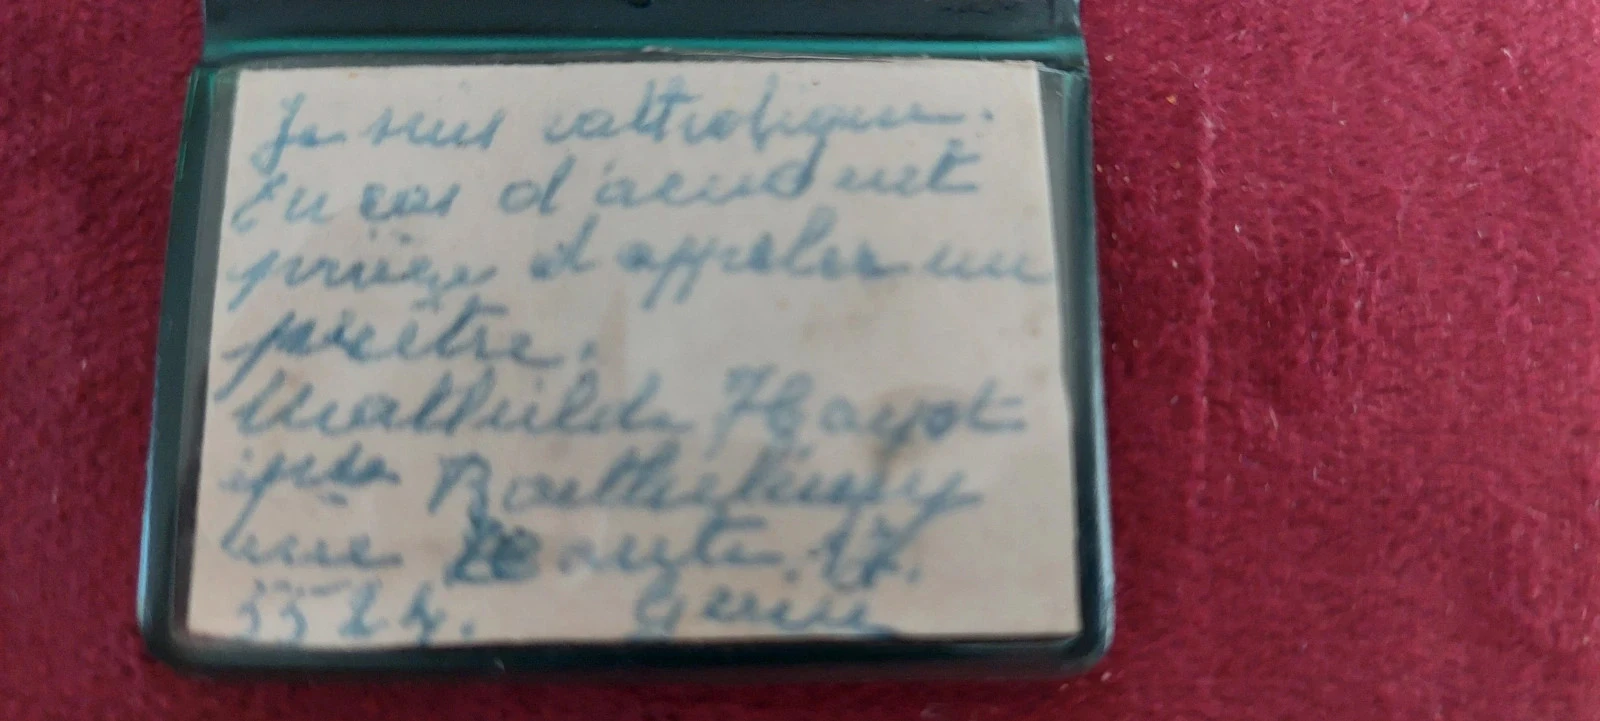 Je suis catholique.
En cas d'accident
prière d'appeler un
prêtre.
Mathilde Hayot
Barthélemy
rue 17.
5524.